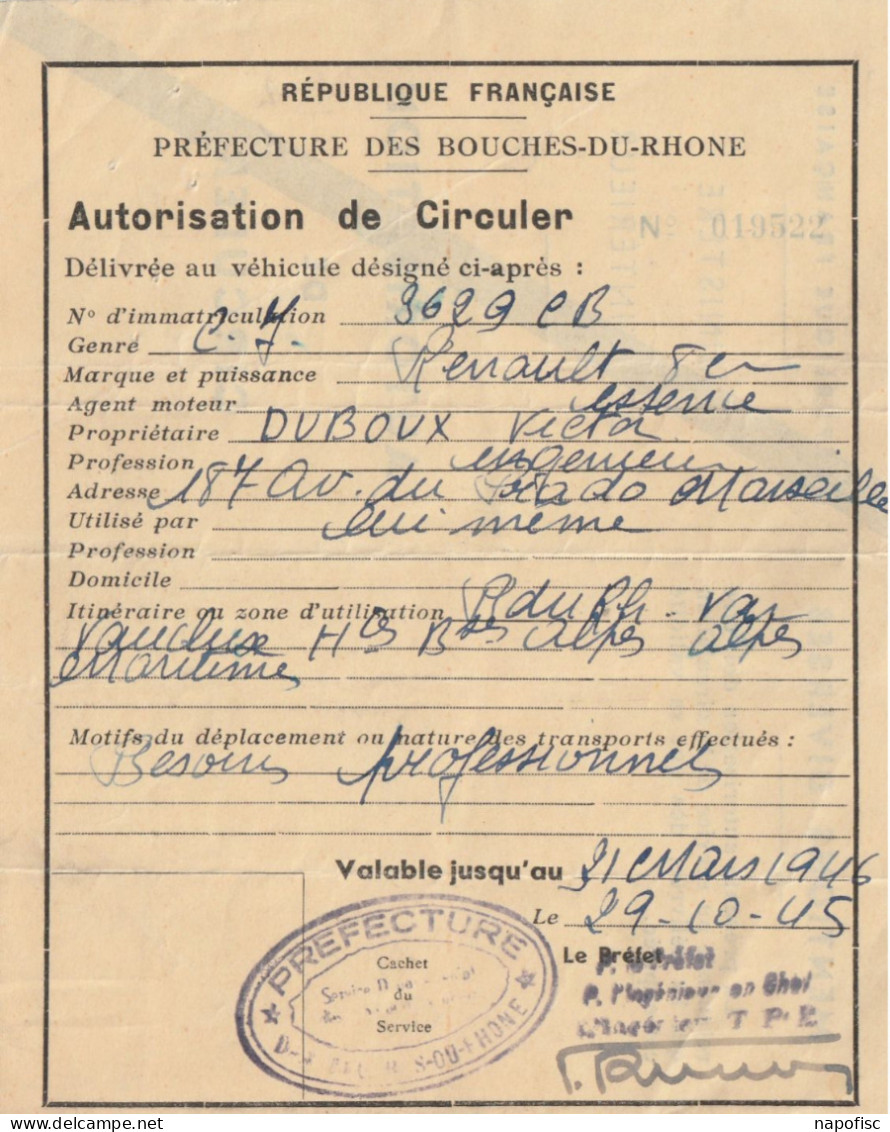 RÉPUBLIQUE FRANÇAISE
PRÉFECTURE DES BOUCHES-DU-RHONE
Autorisation de Circuler
N° 019522
Délivrée au véhicule désigné ci-après :
N° d'immatriculation 3629 CB
Genre C. I.
Marque et puissance Renault 8 cv
Agent moteur essence
Propriétaire DUBOUX Victor
Profession ingenieur
Adresse 187 Av. du Prado Marseille
Utilisé par lui même
Profession
Domicile
Itinéraire ou zone d'utilisation B du Rh - Var
Vaucluse Htes Bses Alpes Alpes
Maritimes
Motifs du déplacement ou nature des transports effectués :
Besoins professionnels
Valable jusqu'au 31 Mars 1946
Le 29-10-45
Le Préfet
P. le Préfet
P. l'Ingénieur en Chef
T P E
PREFECTURE
Cachet
du
Service
napofisc